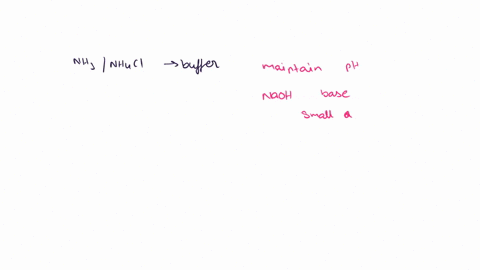 NH3 / NH4Cl → buffer
maintain pH
NaOH base
small a